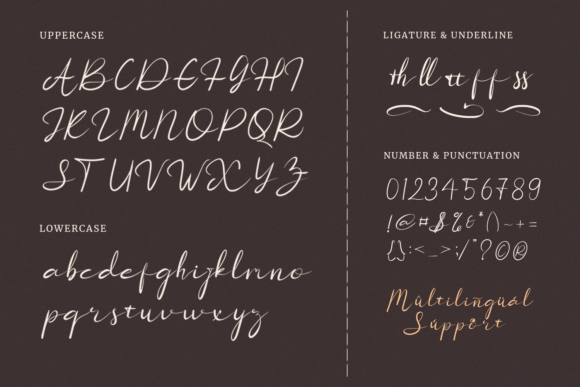 UPPERCASE
ABCDEFGHI
JKLMNOPQR
STUVWXYZ
LOWERCASE
abcdefghijklmno
pqrstuvwxyz
LIGATURE & UNDERLINE
th ll tt ff ss
NUMBER & PUNCTUATION
0123456789
!@#$%&*()-+=
{}:<_>;/"?©®
Multilingual
Support